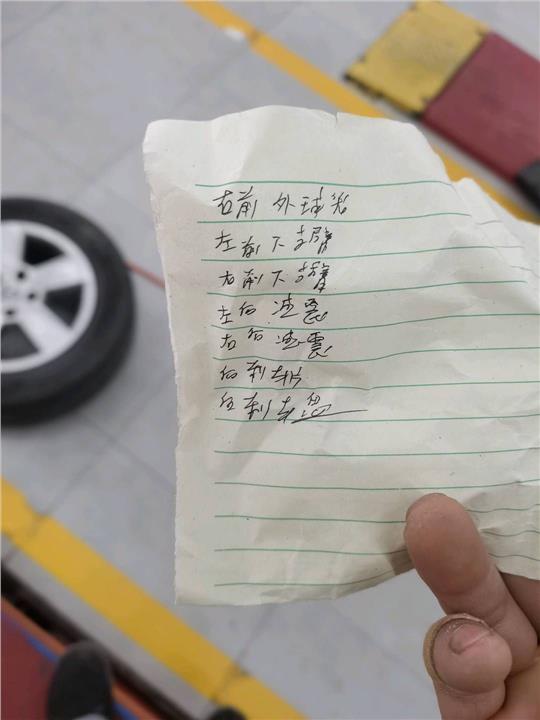 右前外球笼
左前下摆臂
右前下摆臂
左后减震
右后减震
后刹车片
后刹车盘